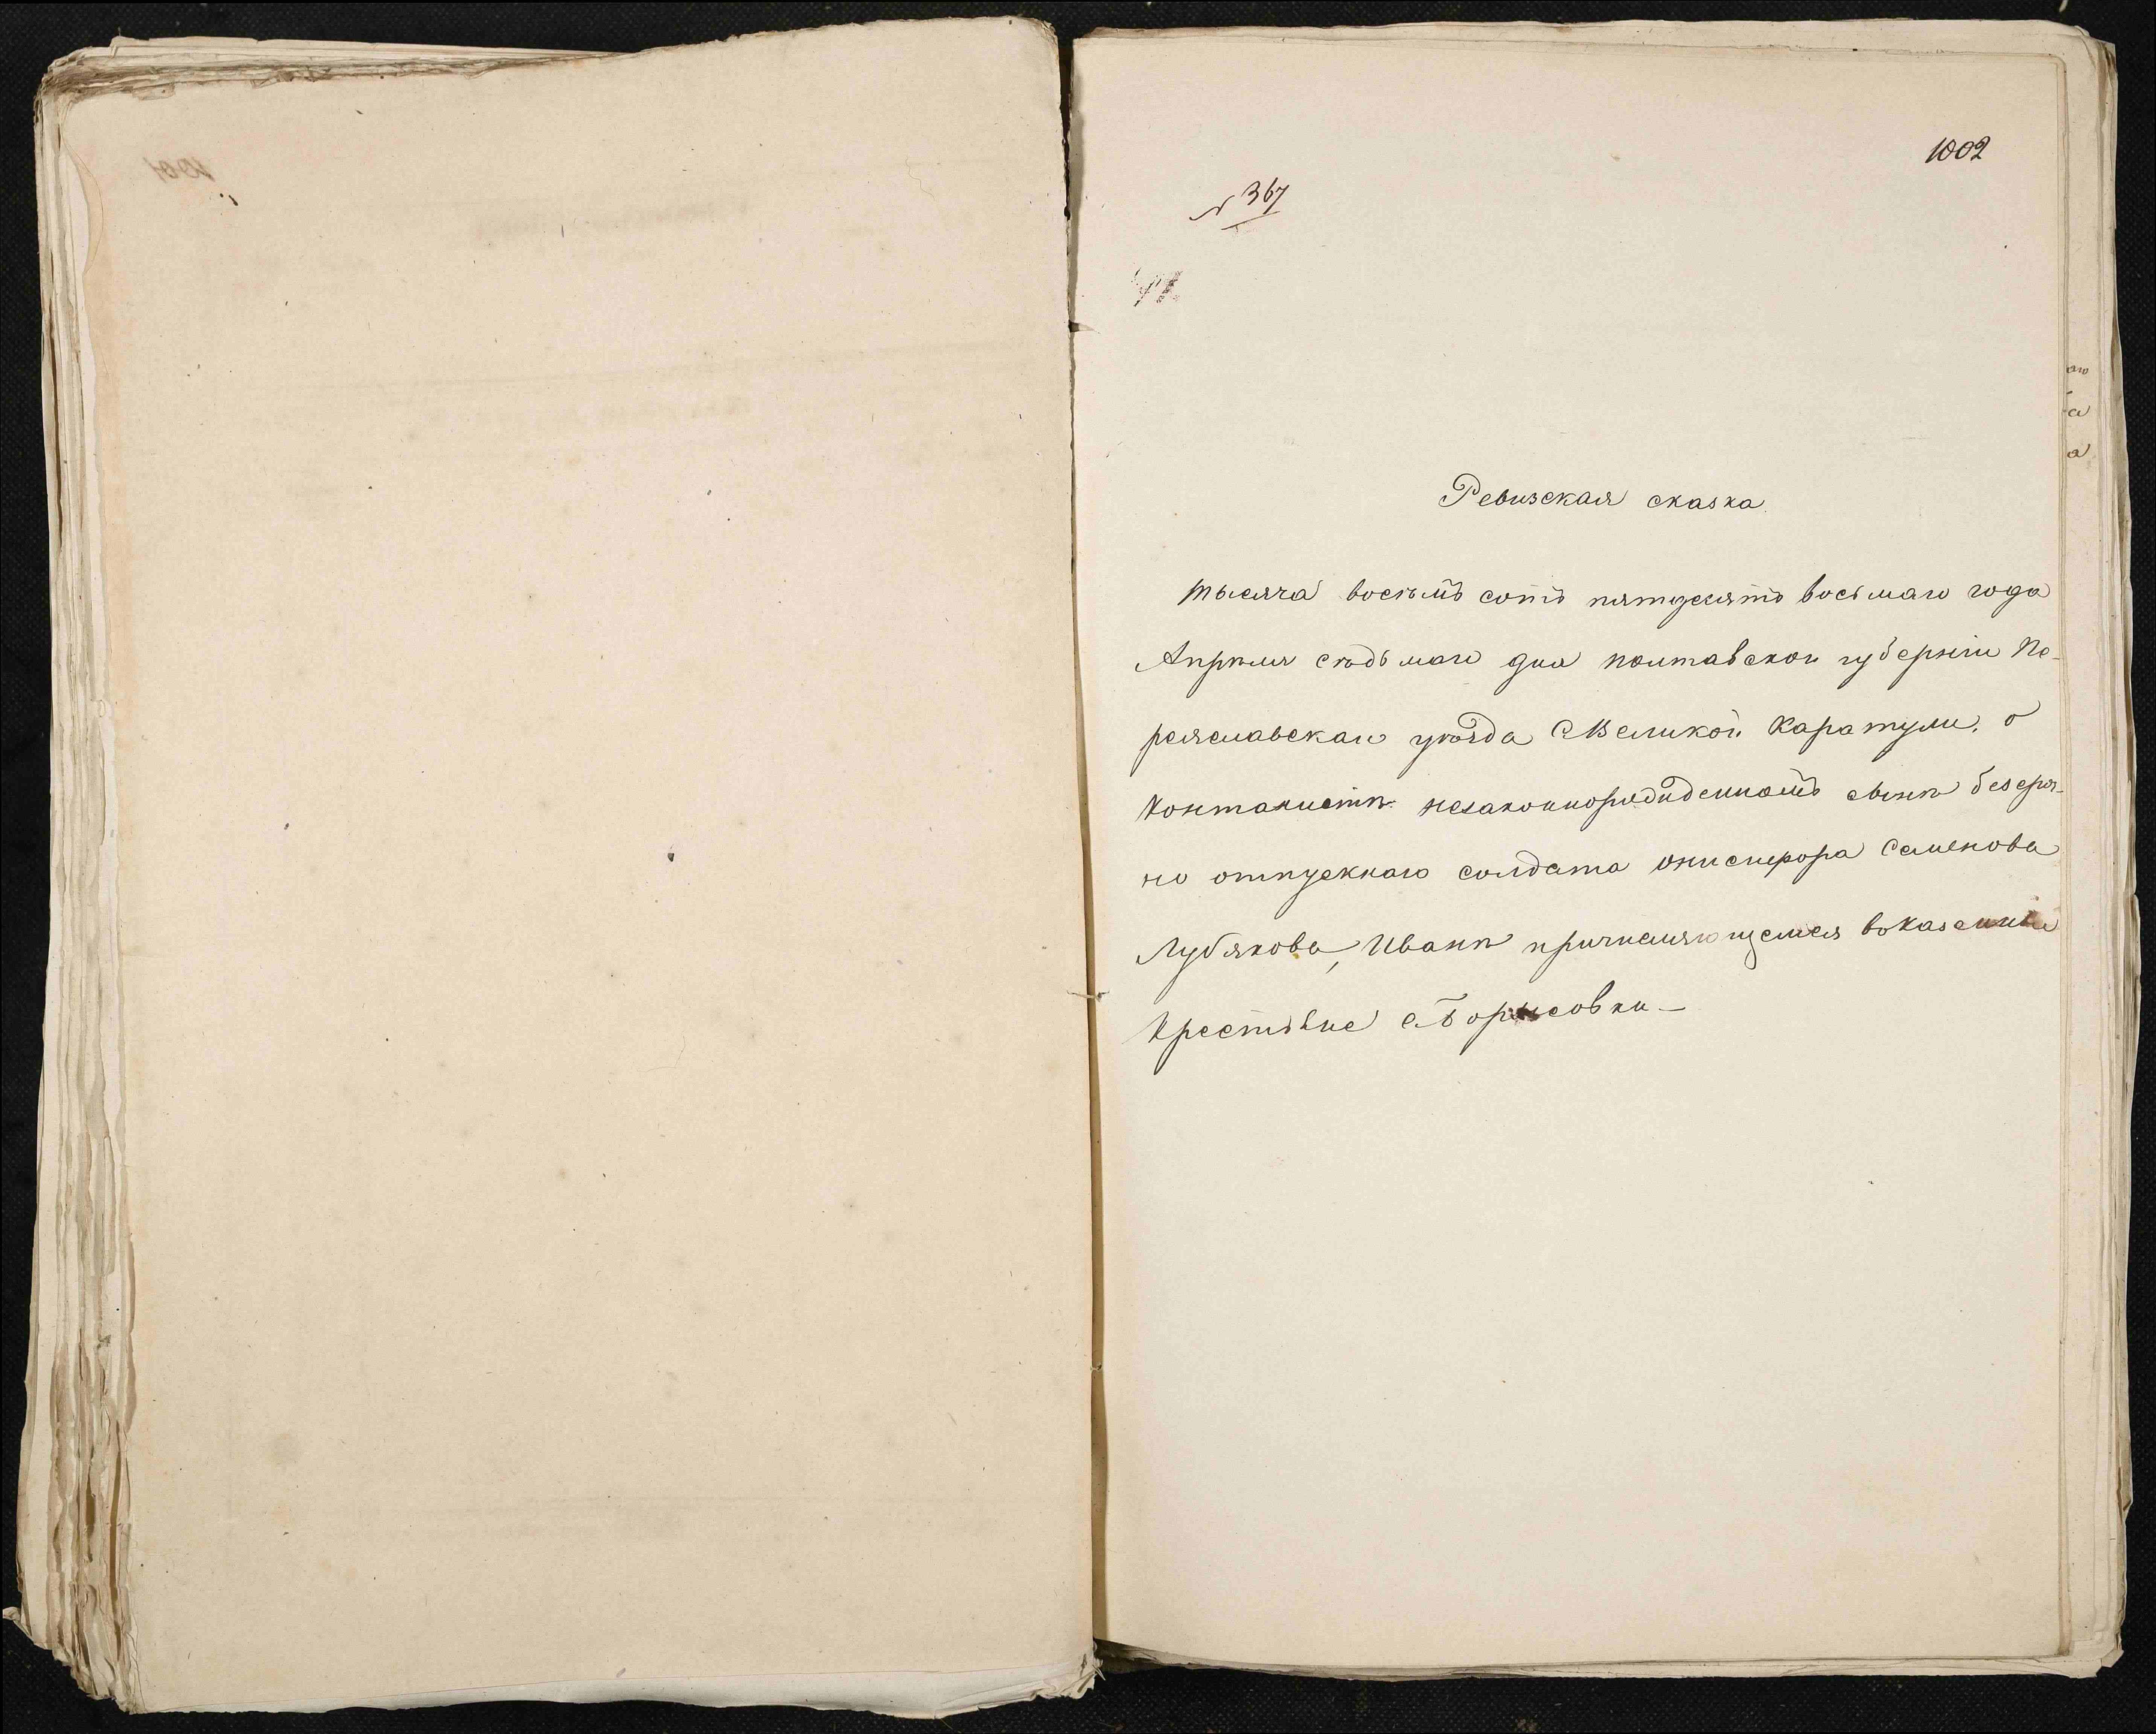 1002
№ 367
Ревизская сказка
тысяча восѣмъ сотъ пятдесятъ восьмаго года
Апрѣля сѣдьмаго дня полтавской губерніи Пе-
реяславскаго уѣзда С. Великой Каратули, о
кантанистѣ незаконнорожденномъ сынѣ безсроч-
но отпускнаго солдата Онисифора Семенова
Лубякова, Иванѣ причисляющемся вказенние
крестьяне с. Борисовки —